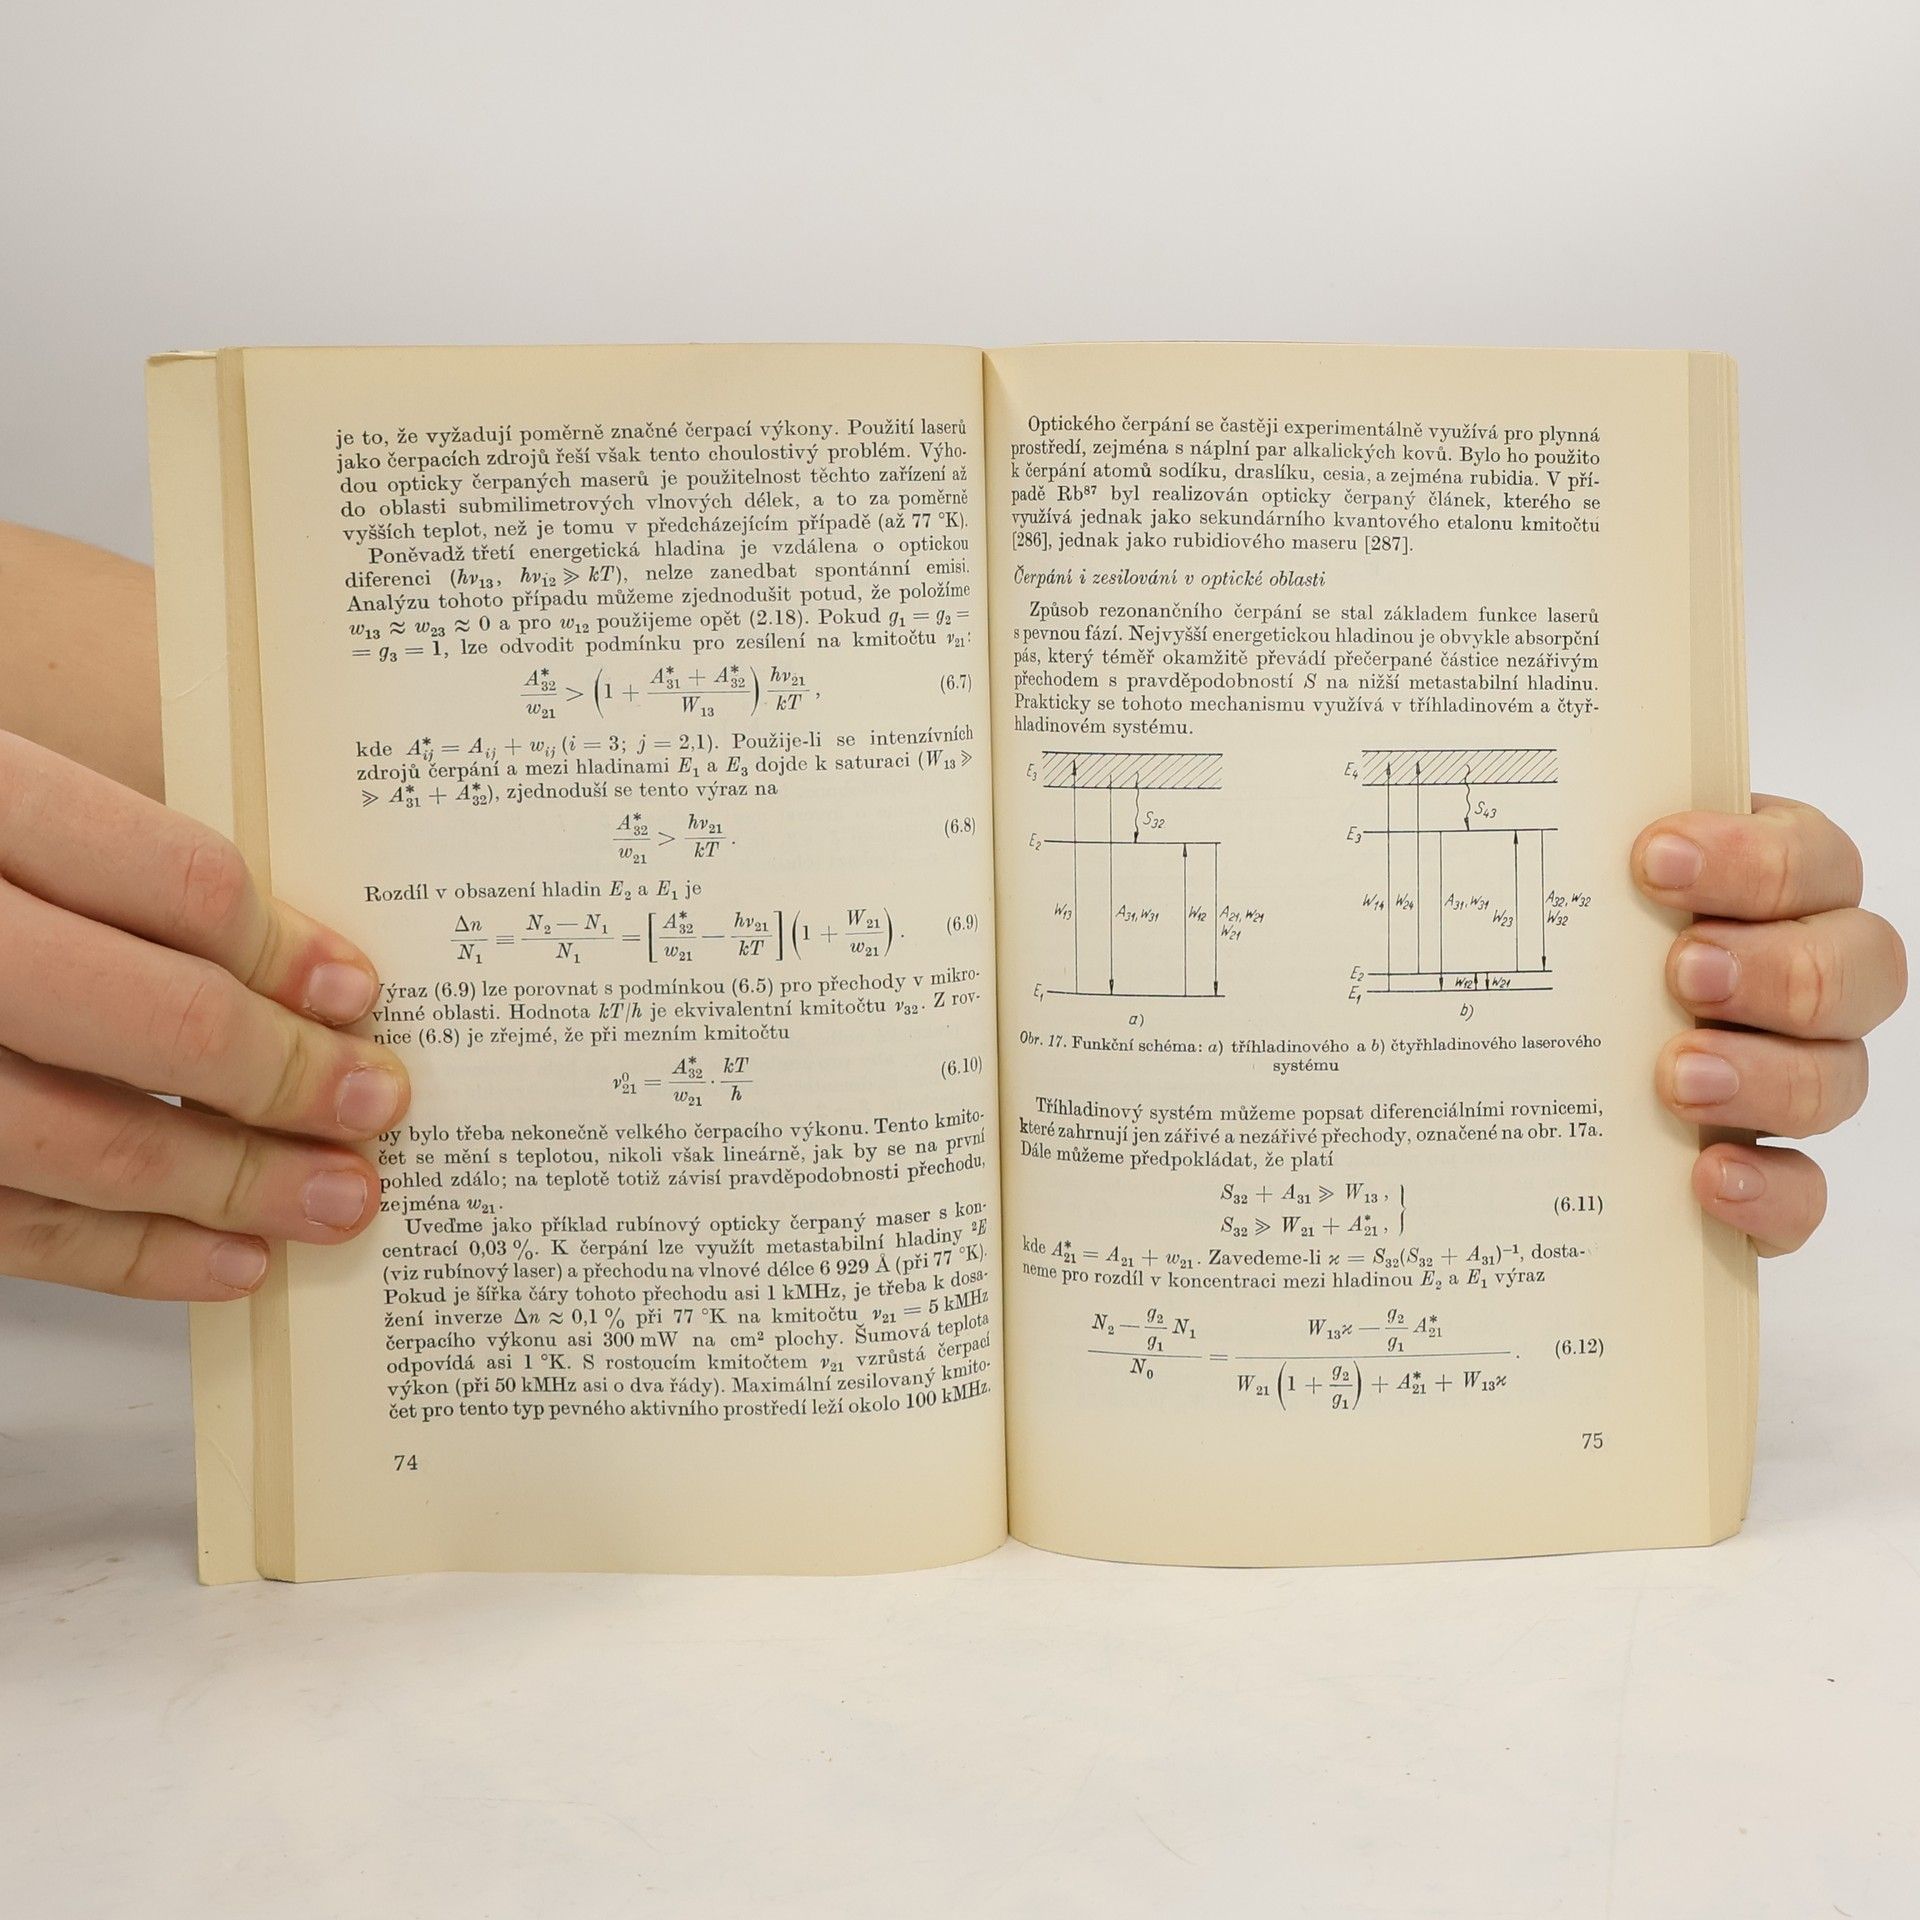 je to, že vyžadují poměrně značné čerpací výkony. Použití laserů
jako čerpacích zdrojů řeší však tento choulostivý problém. Výho-
dou opticky čerpaných maserů je použitelnost těchto zařízení až
do oblasti submilimetrových vlnových délek, a to za poměrně
vyšších teplot, než je tomu v předcházejícím případě (až 77 °K).
Poněvadž třetí energetická hladina je vzdálena o optickou
diferenci (hν₁₃, hν₁₂ ⪢ kT), nelze zanedbat spontánní emisi.
Analýzu tohoto případu můžeme zjednodušit potud, že položíme
w₁₃ ≈ w₂₃ ≈ 0 a pro w₁₂ použijeme opět (2.18). Pokud g₁ = g₂ =
= g₃ = 1, lze odvodit podmínku pro zesílení na kmitočtu ν₂₁:
A*₃₂/w₂₁ > (1 + (A*₃₁ + A*₃₂)/W₁₃) hν₂₁/kT , (6.7)
kde A*ᵢⱼ = Aᵢⱼ + wᵢⱼ (i = 3; j = 2,1). Použije-li se intenzívních
zdrojů čerpání a mezi hladinami E₁ a E₃ dojde k saturaci (W₁₃ ⪢
⪢ A*₃₁ + A*₃₂), zjednoduší se tento výraz na
A*₃₂/w₂₁ > hν₂₁/kT . (6.8)
Rozdíl v obsazení hladin E₂ a E₁ je
Δn/N₁ ≡ (N₂ — N₁)/N₁ = [A*₃₂/w₂₁ — hν₂₁/kT] (1 + W₂₁/w₂₁) . (6.9)
Výraz (6.9) lze porovnat s podmínkou (6.5) pro přechody v mikro-
vlnné oblasti. Hodnota kT/h je ekvivalentní kmitočtu ν₃₂. Z rov-
nice (6.8) je zřejmé, že při mezním kmitočtu
ν⁰₂₁ = A*₃₂/w₂₁ · kT/h (6.10)
by bylo třeba nekonečně velkého čerpacího výkonu. Tento kmito-
čet se mění s teplotou, nikoli však lineárně, jak by se na první
pohled zdálo; na teplotě totiž závisí pravděpodobnosti přechodu,
zejména w₂₁.
Uveďme jako příklad rubínový opticky čerpaný maser s kon-
centrací 0,03 %. K čerpání lze využít metastabilní hladiny ²E
(viz rubínový laser) a přechodu na vlnové délce 6 929 Å (při 77 °K).
Pokud je šířka čáry tohoto přechodu asi 1 kMHz, je třeba k dosa-
žení inverze Δn ≈ 0,1 % při 77 °K na kmitočtu ν₂₁ = 5 kMHz
čerpacího výkonu asi 300 mW na cm² plochy. Šumová teplota
odpovídá asi 1 °K. S rostoucím kmitočtem ν₂₁ vzrůstá čerpací
výkon (při 50 kMHz asi o dva řády). Maximální zesilovaný kmito-
čet pro tento typ pevného aktivního prostředí leží okolo 100 kMHz.
74
Optického čerpání se častěji experimentálně využívá pro plynná
prostředí, zejména s náplní par alkalických kovů. Bylo ho použito
k čerpání atomů sodíku, draslíku, cesia, a zejména rubidia. V pří-
padě Rb⁸⁷ byl realizován opticky čerpaný článek, kterého se
využívá jednak jako sekundárního kvantového etalonu kmitočtu
[286], jednak jako rubidiového maseru [287].
Čerpání i zesilování v optické oblasti
Způsob rezonančního čerpání se stal základem funkce laserů
s pevnou fází. Nejvyšší energetickou hladinou je obvykle absorpční
pás, který téměř okamžitě převádí přečerpané částice nezářivým
přechodem s pravděpodobností S na nižší metastabilní hladinu.
Prakticky se tohoto mechanismu využívá v tříhladinovém a čtyř-
hladinovém systému.
E₃
S₃₂
E₂
W₁₃
A₃₁, w₃₁
W₁₂
A₂₁, w₂₁
W₂₁
E₁
a)
E₄
S₄₃
E₃
W₁₄
W₂₄
A₃₁, w₃₁
W₂₃
A₃₂, w₃₂
W₃₂
E₂
E₁
w₁₂
w₂₁
b)
Obr. 17. Funkční schéma: a) tříhladinového a b) čtyřhladinového laserového
systému
Tříhladinový systém můžeme popsat diferenciálními rovnicemi,
které zahrnují jen zářivé a nezářivé přechody, označené na obr. 17a.
Dále můžeme předpokládat, že platí
S₃₂ + A₃₁ ⪢ W₁₃ ,
S₃₂ ⪢ W₂₁ + A*₂₁ , } (6.11)
kde A*₂₁ = A₂₁ + w₂₁. Zavedeme-li ϰ = S₃₂(S₃₂ + A₃₁)⁻¹, dosta-
neme pro rozdíl v koncentraci mezi hladinou E₂ a E₁ výraz
(N₂ — g₂/g₁ N₁)/N₀ = (W₁₃ϰ — g₂/g₁ A*₂₁)/(W₂₁ (1 + g₂/g₁) + A*₂₁ + W₁₃ϰ) . (6.12)
75